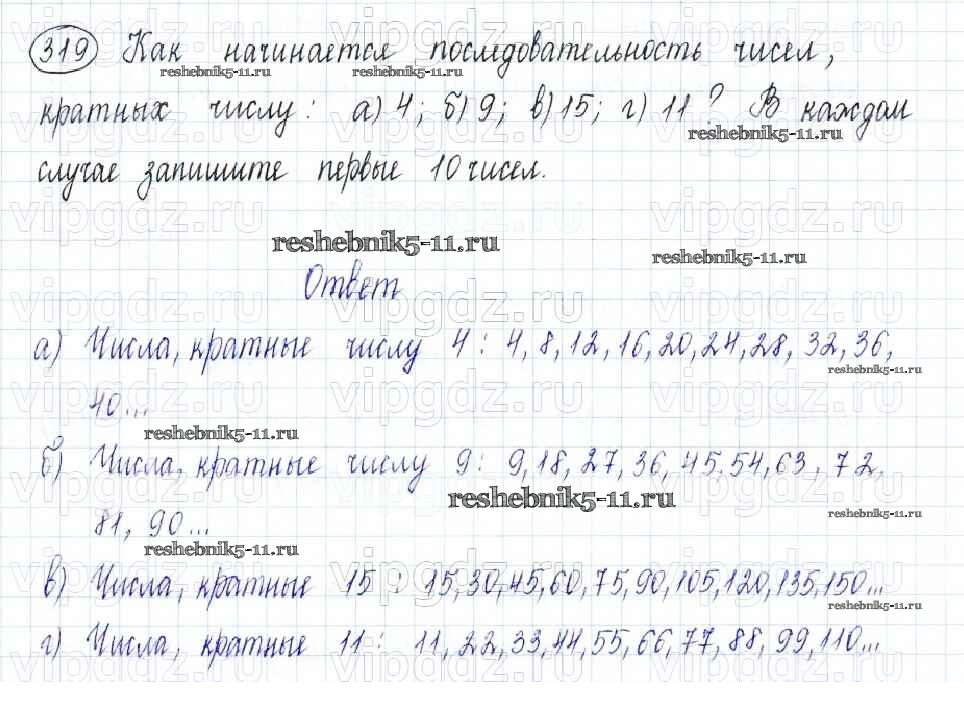 319 Как начинается последовательность чисел,
reshebnik5-11.ru reshebnik5-11.ru
кратных числу: а) 4; б) 9; в) 15; г) 11? В каждом
reshebnik5-11.ru
случае запишите первые 10 чисел.
vipgdz.ru vipgdz.ru vipgdz.ru
reshebnik5-11.ru
reshebnik5-11.ru
Ответ
vipgdz.ru vipgdz.ru vipgdz.ru
а) Числа, кратные числу 4: 4, 8, 12, 16, 20, 24, 28, 32, 36,
reshebnik5-11.ru
40...
vipgdz.ru vipgdz.ru vipgdz.ru
reshebnik5-11.ru
б) Числа, кратные числу 9: 9, 18, 27, 36, 45, 54, 63, 72,
reshebnik5-11.ru
reshebnik5-11.ru
81, 90...
reshebnik5-11.ru
в) Числа, кратные 15: 15, 30, 45, 60, 75, 90, 105, 120, 135, 150...
reshebnik5-11.ru
г) Числа, кратные 11: 11, 22, 33, 44, 55, 66, 77, 88, 99, 110...
reshebnik5-11.ru